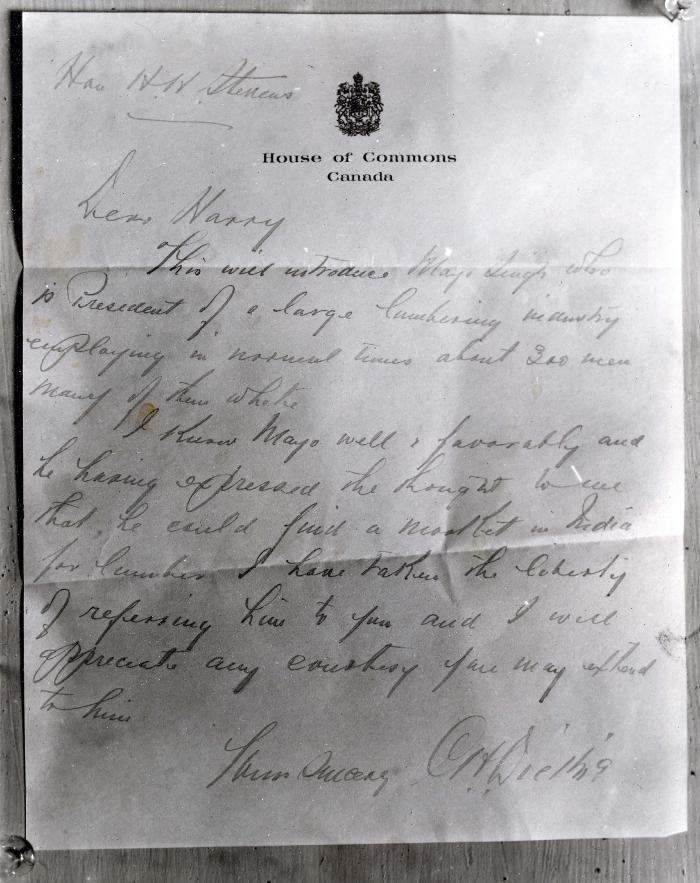 Hon H.H. Stevens
House of Commons
Canada
Dear Harry
This will introduce Mayo Singh who
is President of a large lumbering industry
employing in normal times about 300 men
many of them white
I know Mayo well & favorably and
he having expressed the thought to me
that he could find a market in India
for lumber I have taken the liberty
of referring him to you and I will
appreciate any courtesy you may extend
to him
Yours Sincerely C.H. Dickie